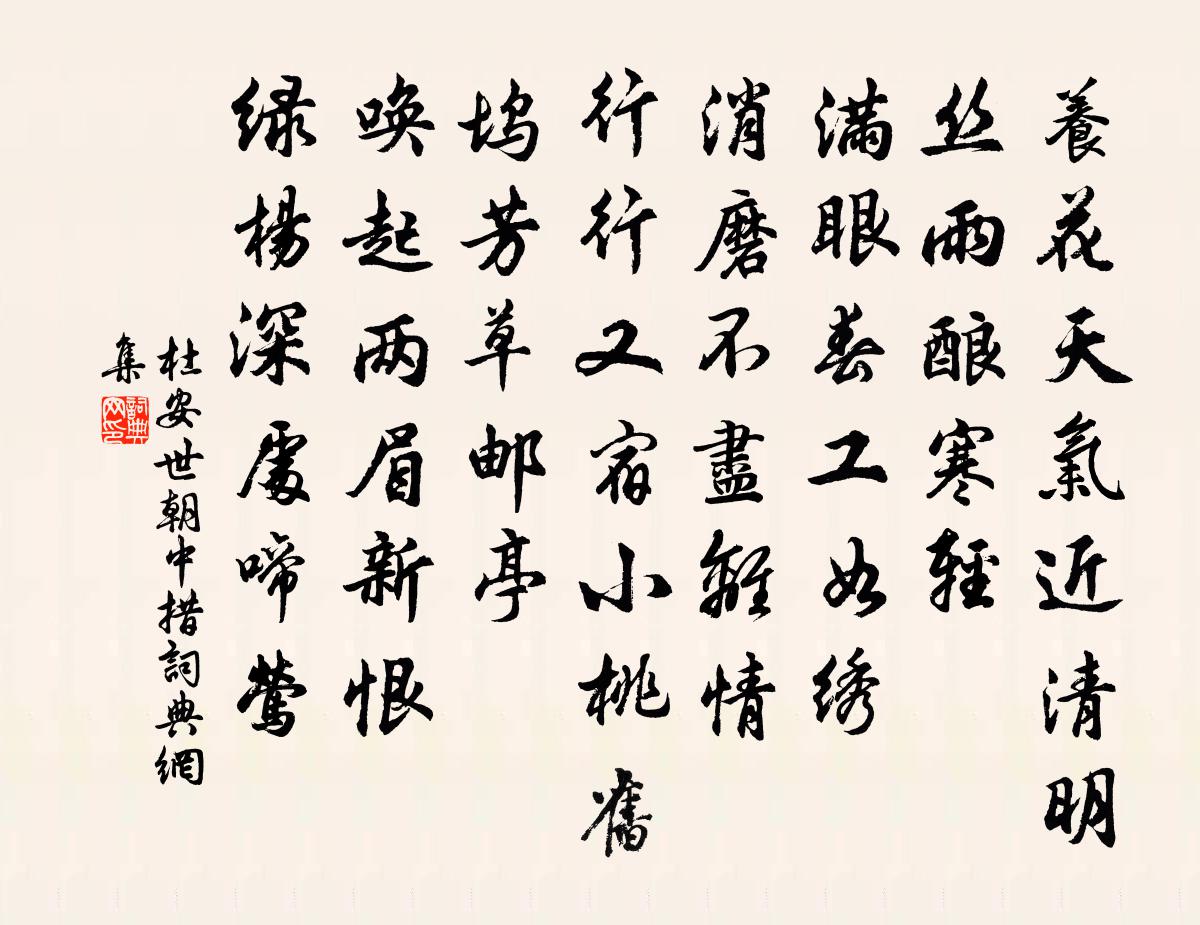 養花天氣近清明
丝雨酿寒輕
滿眼春工如绣
消磨不盡離情
行行又宿小桃舊
坞芳草邮亭
唤起两眉新恨
绿楊深處啼鶯
杜安世朝中措詞典網
集
詞典网印